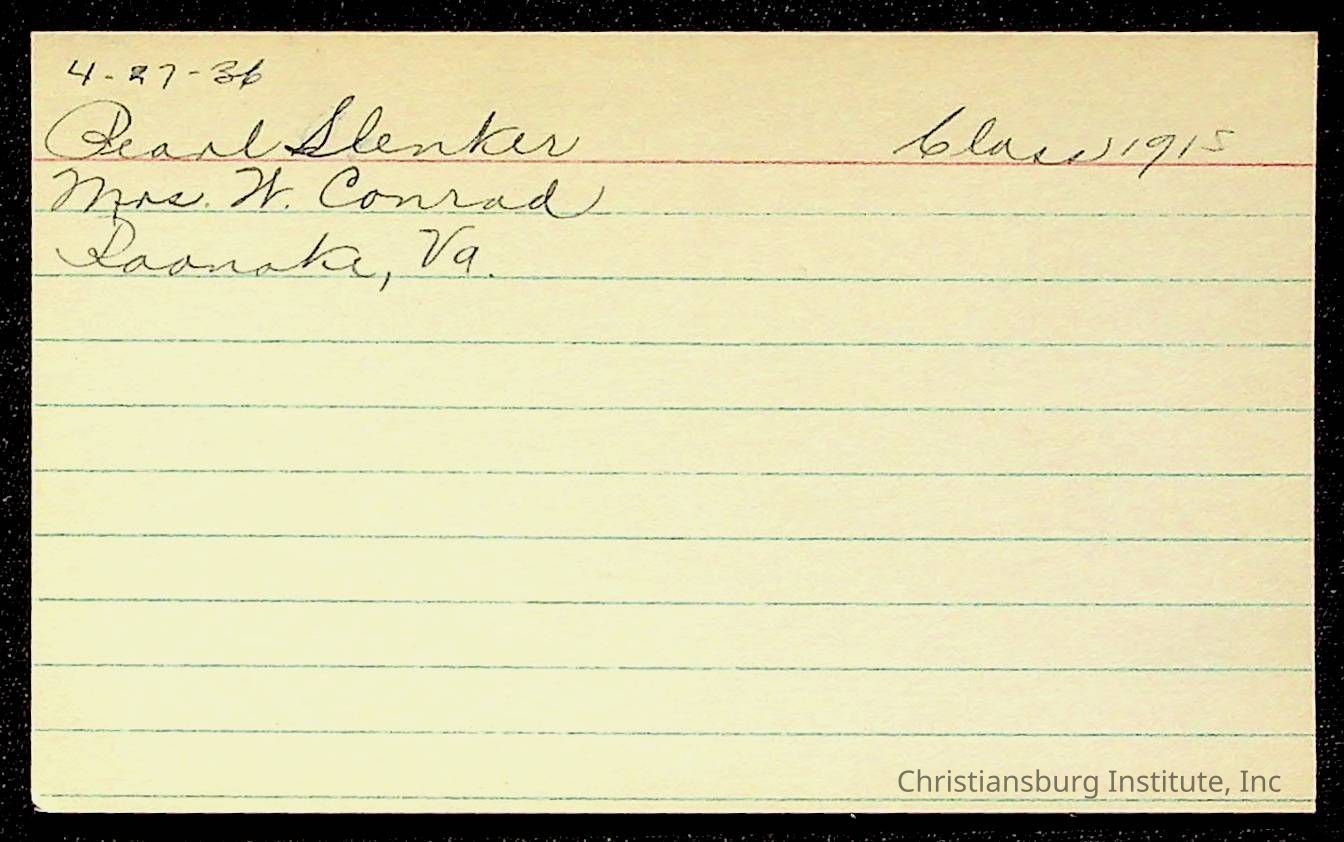 4-27-36
Pearl Slenker Class 1915
Mrs. W. Conrad
Roanoke, Va.
Christiansburg Institute, Inc